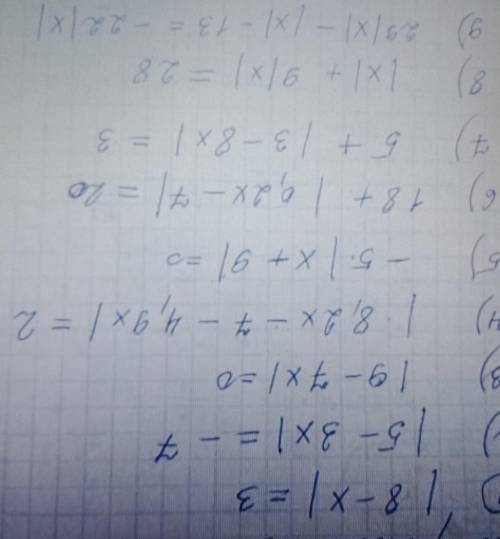 1) |8-x|=3
2) |5-3x|=-7
3) |9-7x|=0
4) |8,2x-7-4,9x|=2
5) -5.|x+9|=0
6) 18+|0,2x-7|=20
7) 5+|3-8x|=3
8) |x|+9|x|=28
9) 29|x|-|x|-13=-22|x|